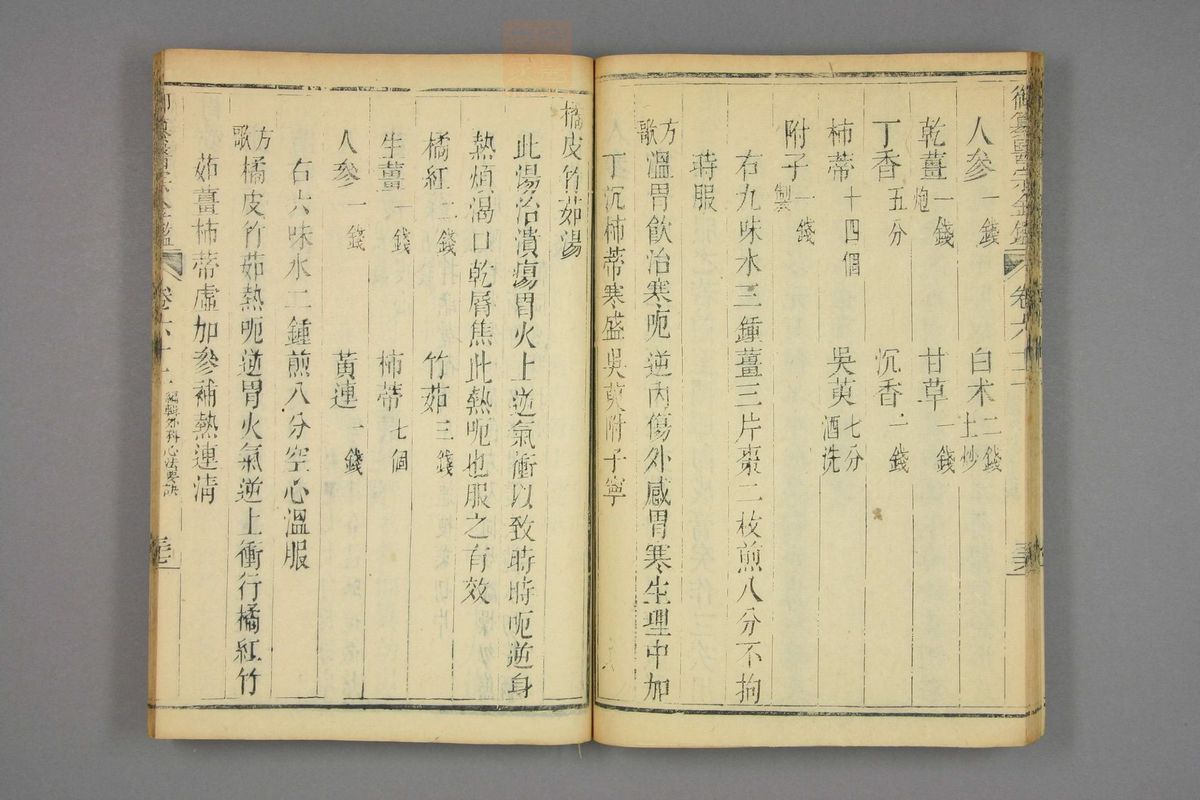 人參一錢 白朮二錢土炒
乾薑一錢炮 甘草一錢
丁香五分 沉香一錢
柿蒂十四個 吳萸七分酒洗
附子一錢製
右九味水三鍾薑三片棗二枚煎八分不拘
時服
方歌溫胃飲治寒呃逆內傷外感胃寒生理中加
丁沉柿蒂寒盛吳萸附子寧
橘皮竹茹湯
此湯治潰瘍胃火上逆氣衝以致時時呃逆身
熱煩渴口乾唇焦此熱呃也服之有效
橘紅二錢 竹茹三錢
生薑一錢 柿蒂七個
人參一錢 黃連一錢
右六味水二鍾煎八分空心溫服
方歌橘皮竹茹熱呃逆胃火氣逆上衝行橘紅竹
茹薑柿蒂虛加參補熱連清
卷六十二 編輯外科心法要訣